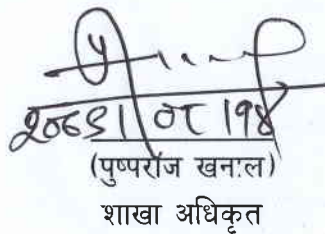 २०७९।०८।१४
(पुष्पराज खनाल)
शाखा अधिकृत